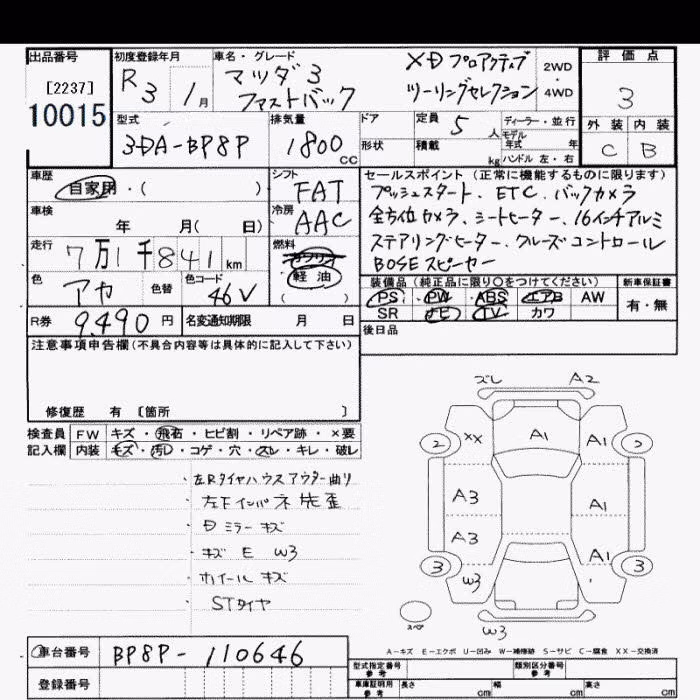 出品番号
[2237]
10015
初度登録年月
R 3 1月
車名・グレード
マツダ3
ファストバック
XD プロアクティブ
ツーリングセレクション
2WD
・
4WD
評価点
3
外装 内装
C B
型式
3DA-BP8P
排気量
1800 CC
ドア
形状
定員 5 人
積載 kg
ディーラー・並行
モデル年式 年
ハンドル 左・右
車歴
自家用・( )
シフト
FAT
車検
年 月( 日)
冷房
AAC
走行
7万1千841km
燃料
ガソリン
軽油
( )
色
アカ
色替
色コード
46V
R券 9,490 円
名変通知期限 月 日
セールスポイント(正常に機能するものに限ります)
プッシュスタート、ETC、バックカメラ
全方位カメラ、シートヒーター、16インチアルミ
ステアリングヒーター、クルーズコントロール
BOSEスピーカー
装備品(純正品に限り○をつけてください)
PS PW ABS エアB AW
SR ナビ TV カワ
新車保証書
有・無
後日品
注意事項申告欄(不具合内容等は具体的に記入して下さい)
修復歴 有 [箇所 ]
検査員 FW キズ・飛石・ヒビ割・リペア跡・×要
記入欄 内装 キズ・汚レ・コゲ・穴・スレ・キレ・破レ
・左Rタイヤハウスアウター曲り
・左Fインパネ先歪
・Dミラーキズ
・キズ E W3
・ホイールキズ
・STタイヤ
ズレ A2
2 XX A1 A1 2
A3 A1
A3 A1
3 W3 3
スペア
W3
A-キズ E-エクボ U-凹み W-補修跡 S-サビ C-腐食 XX-交換済
車台番号 BP8P-110646
登録番号
型式指定番号
参考
類別区分番号
参考
車庫証明用
参考
長さ cm 幅 cm 高さ cm